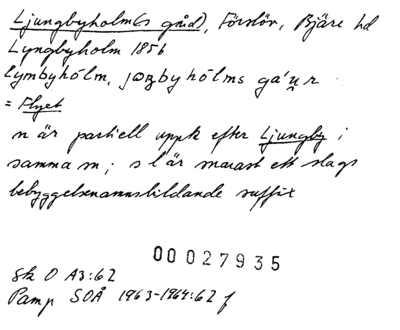 Ljungbyholm(s gård), Förslöv, Bjäre hd
Lyngbyholm 1856
lymbyhólm, jɷŋbyhólms ga'u̯r
= Flyet
n är partiell uppk efter Ljungby i
samma sn; sl är snarast ett slags
bebyggelsenamnsbildande suffix
00027935
Sk O A3:62
Pamp SOÅ 1963-1964:62 f